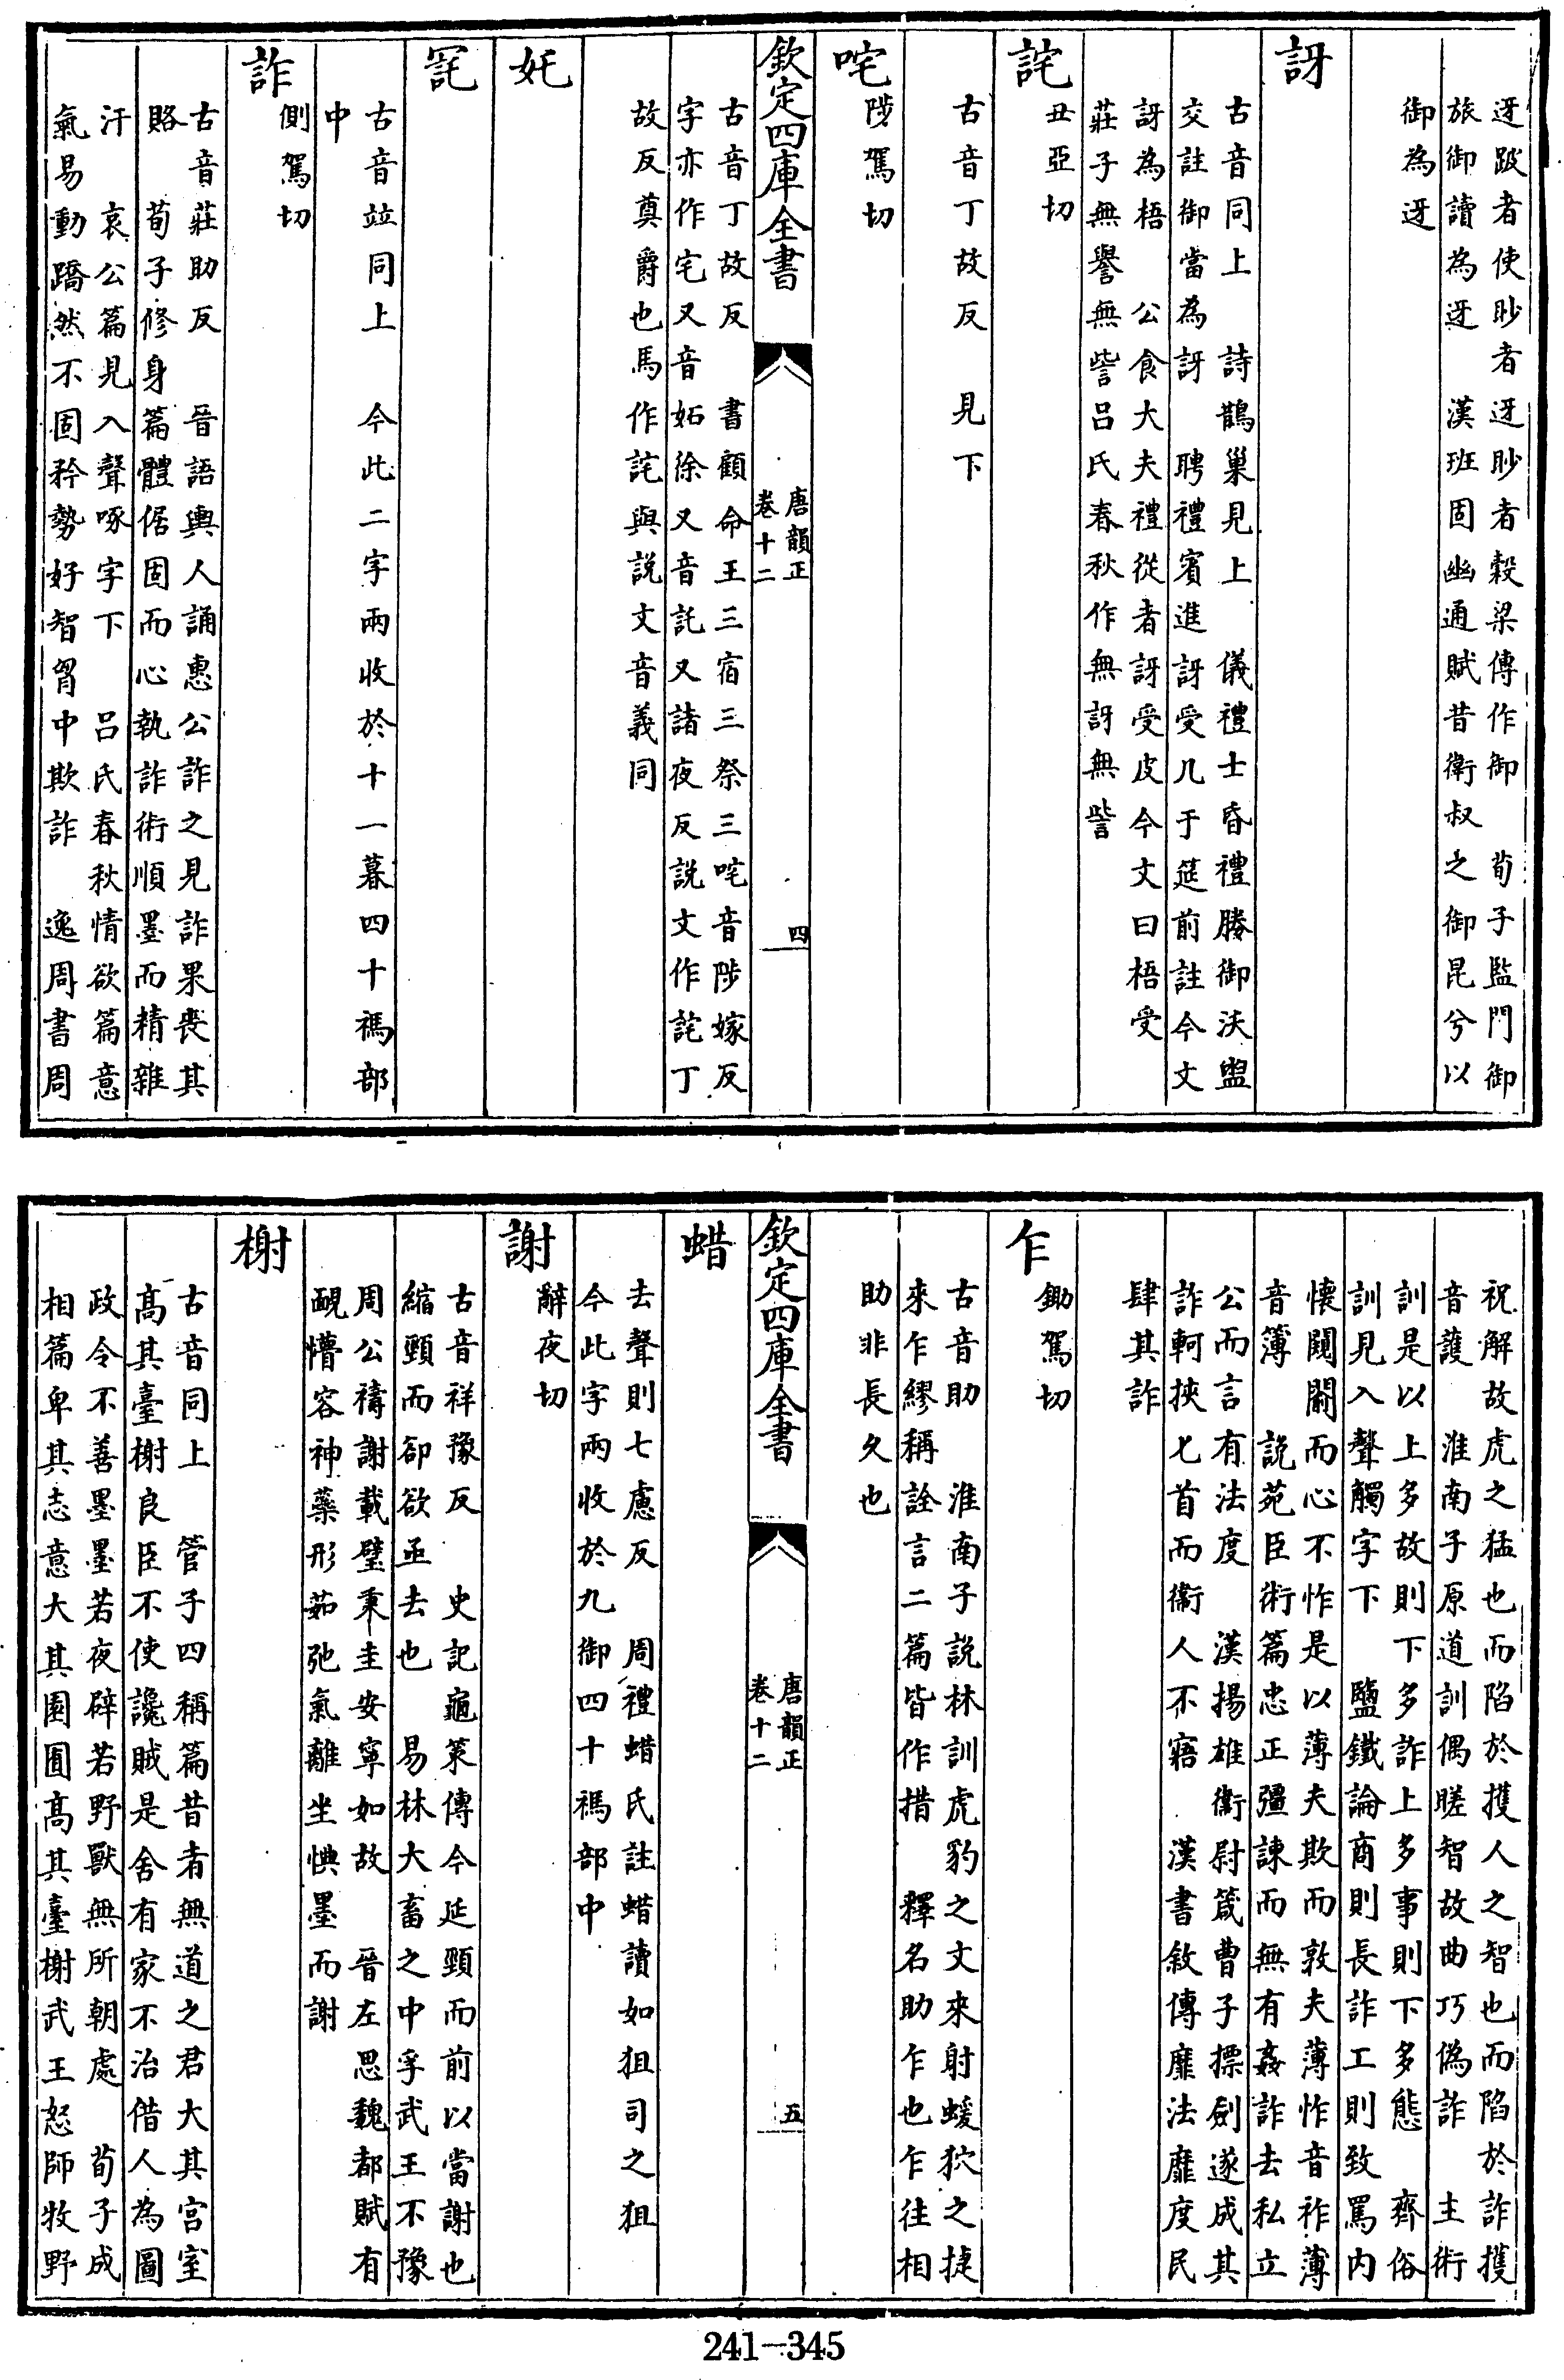 迓跛者使眇者迓眇者穀梁傳作御　荀子監門御
旅御讀為迓　漢班固幽通賦昔衛叔之御昆兮以
御為迓
訝
古音同上　詩鵲巢見上　儀禮士昏禮媵御沃盥
交註御當為訝　聘禮賓進訝受几于筵前註今文
訝為梧　公食大夫禮從者訝受皮今文曰梧受
莊子無譽無訾呂氏春秋作無訝無訾
詫
丑亞切
古音丁故反　見下
咤
陟駕切
欽定四庫全書
唐韻正
卷十二
四
古音丁故反　書顧命王三宿三祭三咤音陟嫁反
字亦作宅又音妬徐又音託又諸夜反説文作詫丁
故反奠爵也馬作詫與説文音義同
奼
䆛
古音竝同上　今此二字兩收於十一暮四十禡部
中
詐
側駕切
古音莊助反　晉語輿人誦惠公詐之見詐果喪其
賂　荀子修身篇體倨固而心執詐術順墨而精雜
汙　哀公篇見入聲啄字下　呂氏春秋情欲篇意
氣易動蹻然不固矜勢好智胷中欺詐　逸周書周
祝解故虎之猛也而陷於擭人之智也而陷於詐擭
音護　淮南子原道訓偶䁟智故曲巧偽詐　主術
訓是以上多故則下多詐上多事則下多態　齊俗
訓見入聲觸字下　鹽鐵論商則長詐工則致罵内
懷闚覦而心不怍是以薄夫欺而敦夫薄怍音祚薄
音簿　説苑臣術篇忠正彊諫而無有姦詐去私立
公而言有法度　漢揚雄衛尉箴曹子摽劍遂成其
詐軻挾匕首而衞人不寤　漢書敘傳靡法靡度民
肆其詐
乍
鋤駕切
古音助　淮南子説林訓虎豹之文來射蝯狖之捷
來乍繆稱詮言二篇皆作措　釋名助乍也乍往相
助非長久也
欽定四庫全書
唐韻正
卷十二
五
蜡
去聲則七慮反　周禮蜡氏註蜡讀如狙司之狙
今此字兩收於九御四十禡部中
謝
辭夜切
古音祥豫反　史記龜策傳今延頸而前以當謝也
縮頸而郤欲亟去也　易林大畜之中孚武王不豫
周公禱謝載璧秉圭安寧如故　晉左思魏都賦有
靦瞢容神蘂形茹弛氣離坐㥏墨而謝
榭
古音同上　管子四稱篇昔者無道之君大其宫室
髙其臺榭良臣不使讒賊是舍有家不治借人為圖
政令不善墨墨若夜辟若野獸無所朝處　荀子成
相篇卑其志意大其園囿髙其臺榭武王怒師牧野
241-345